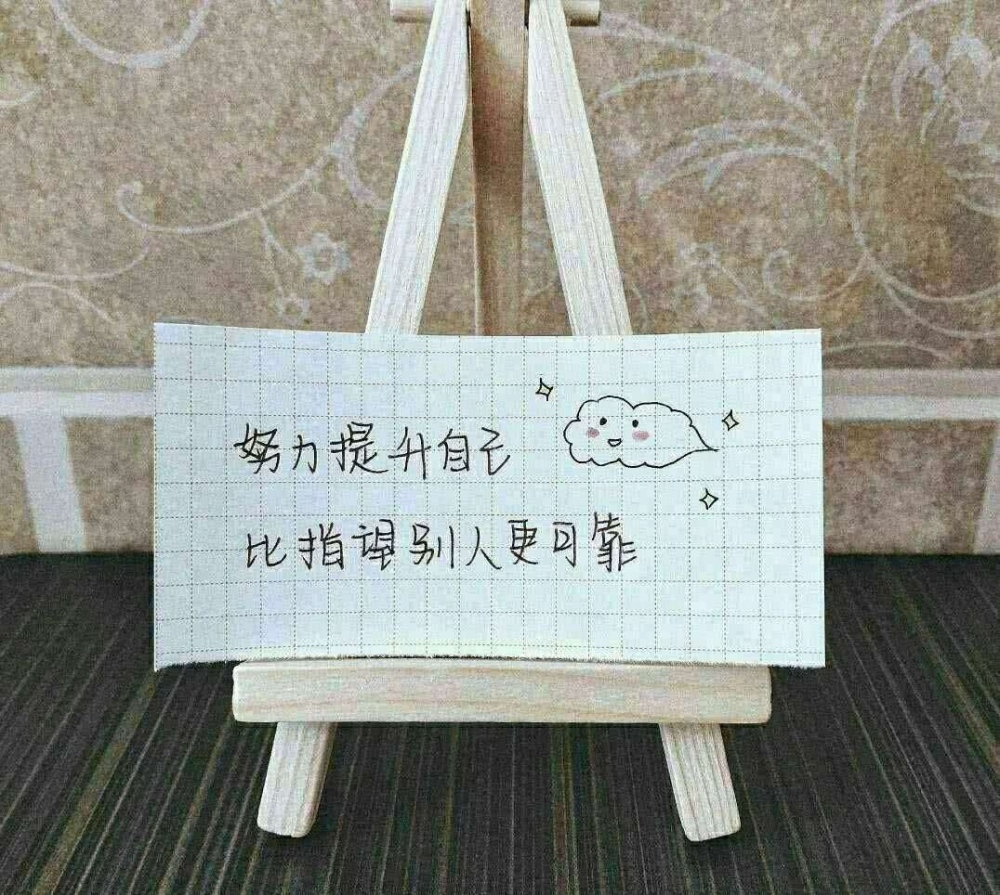 努力提升自己
比指望别人更可靠